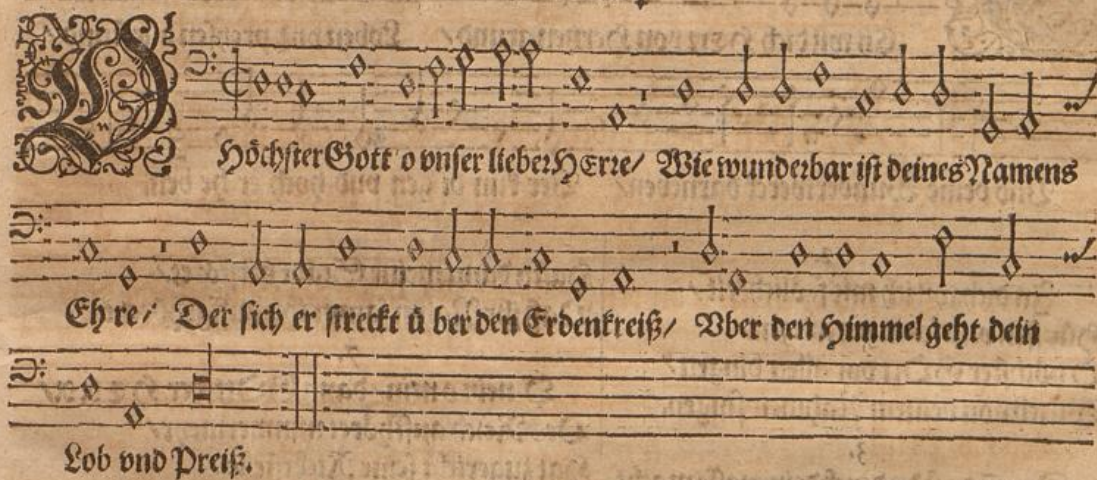 O Höchster Gott o vnser lieber HErre/ Wie wunderbar ist deines Namens
Eh re/ Der sich er streckt ü ber den Erdenkreiß/ Vber den Himmel geht dein
Lob vnd Preiß.